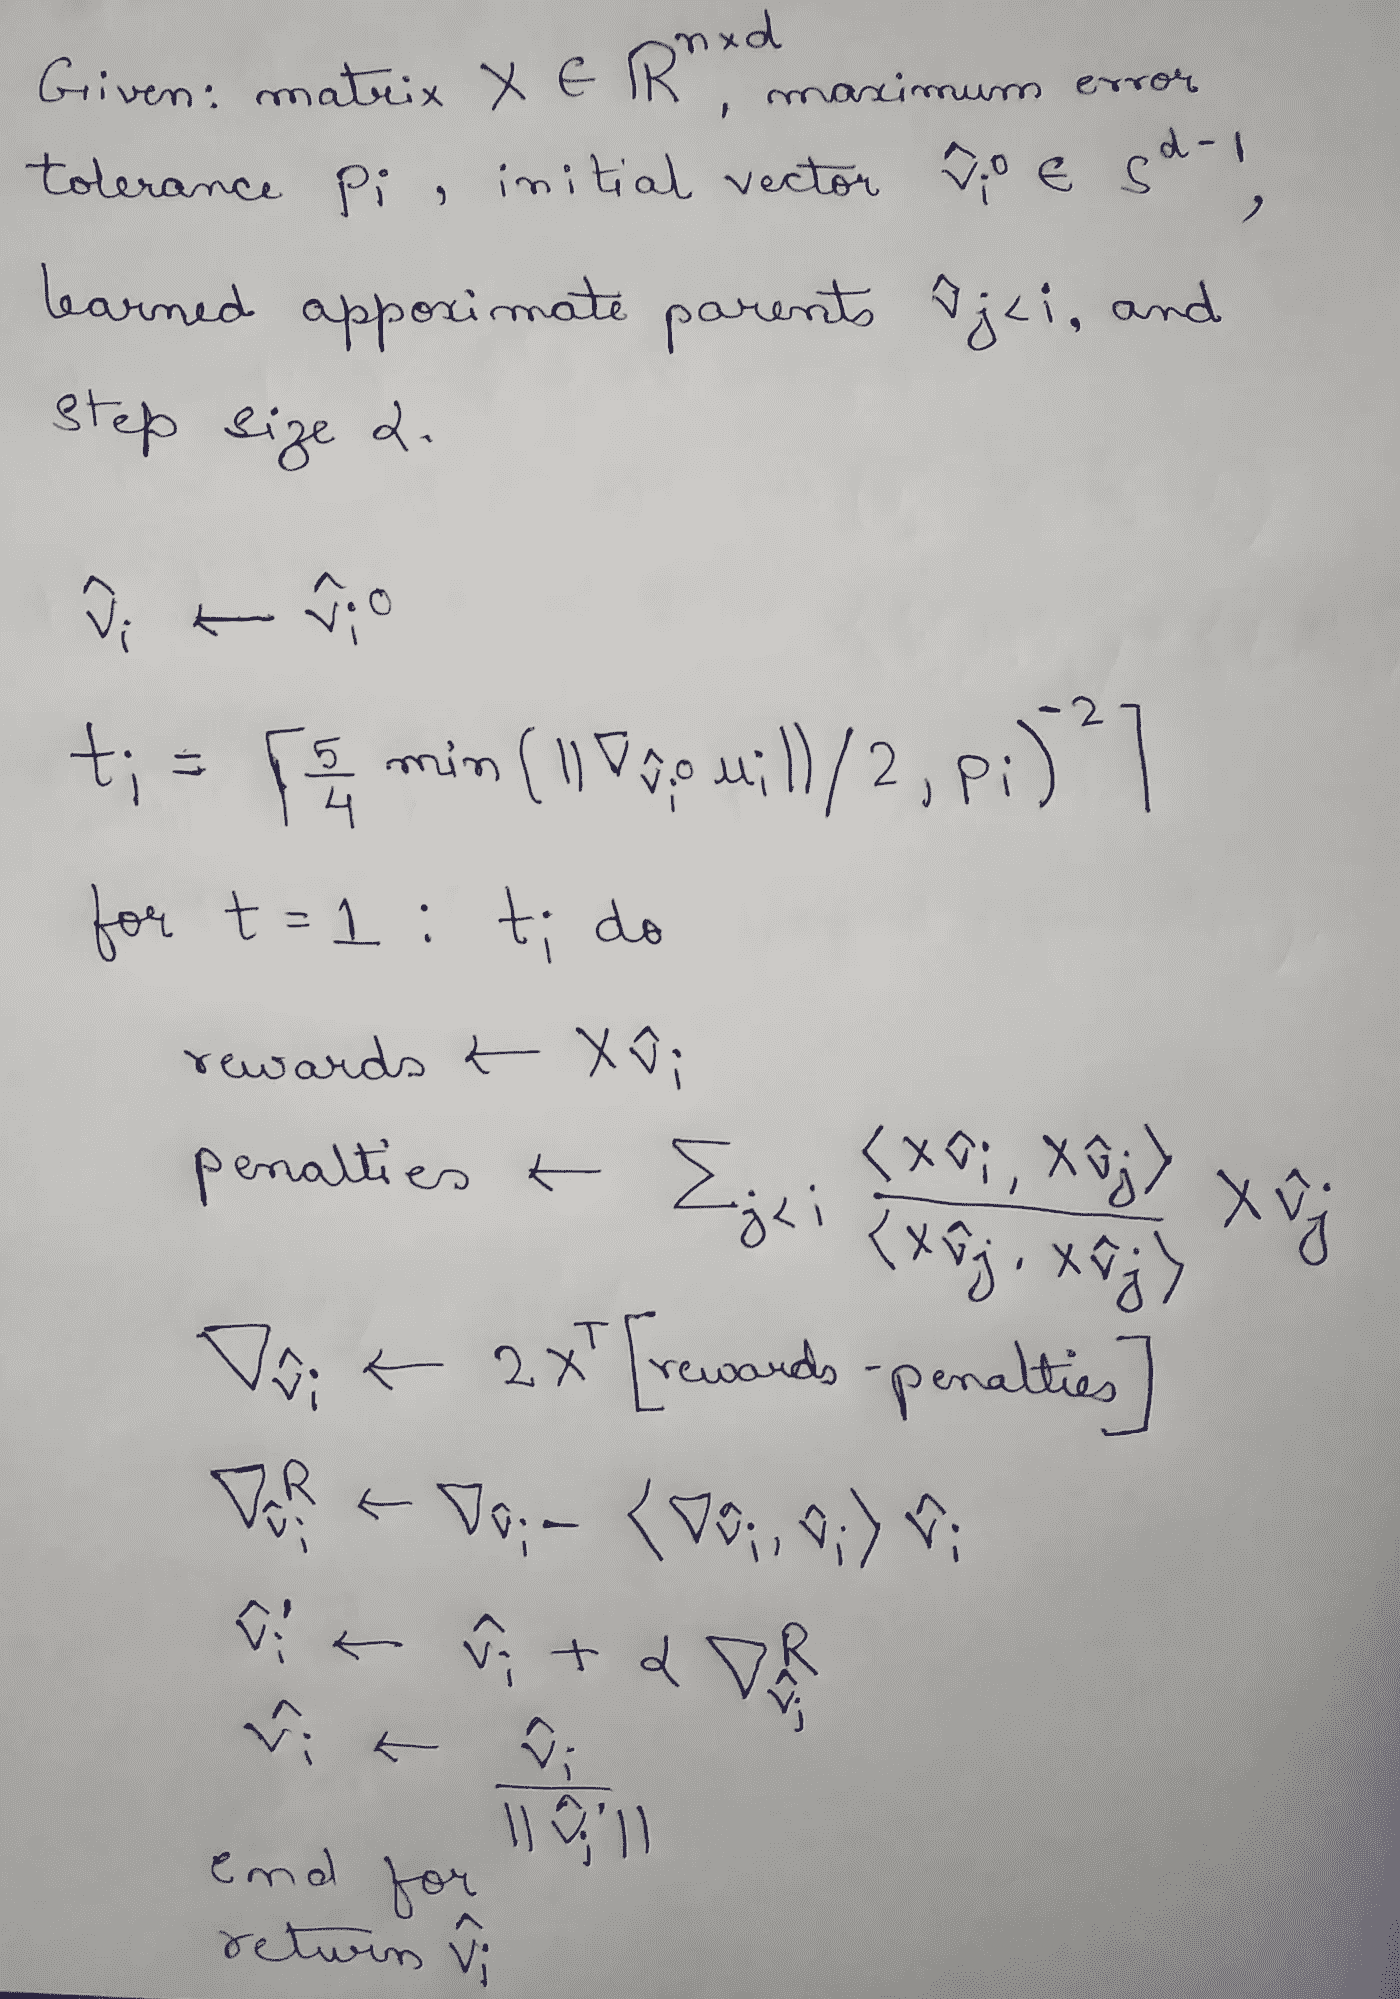 Given: matrix X ∈ ℝ^{n×d}, maximum error
tolerance ρ_i, initial vector v̂_i^0 ∈ S^{d-1},
learned apporimate parents v̂_{j<i}, and
step size α.
v̂_i ← v̂_i^0
t_i = ⌈5/4 min(||∇_{v̂_i^0} u_i||/2, ρ_i)^{-2}⌉
for t = 1 : t_i do
rewards ← Xv̂_i
penalties ← Σ_{j<i} ⟨Xv̂_i, Xv̂_j⟩/⟨Xv̂_j, Xv̂_j⟩ Xv̂_j
∇_{v̂_i} ← 2X^T [rewards - penalties]
∇^R_{v̂_i} ← ∇_{v̂_i} - ⟨∇_{v̂_i}, v̂_i⟩ v̂_i
v̂_i' ← v̂_i + α ∇^R_{v̂_i}
v̂_i ← v̂_i/||v̂_i'||
end for
return v̂_i